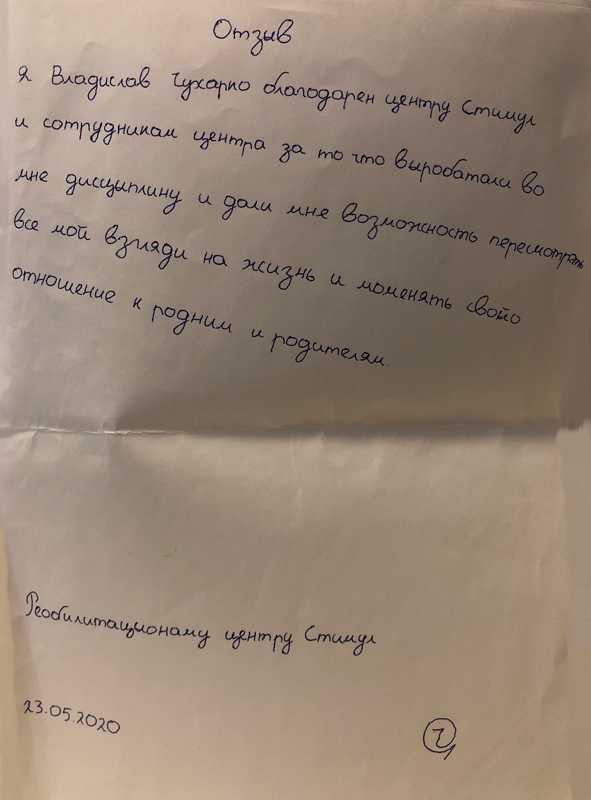 Отзыв
Я Владислав Чухарко благодарен центру Стимул
и сотрудникам центра за то что выробатали во
мне дисциплину и дали мне возможность пересмотреть
все мой взгляди на жизнь и моменять свойо
отношение к родним и родителям.
Реобилитационаму центру Стимул
23.05.2020
Ч